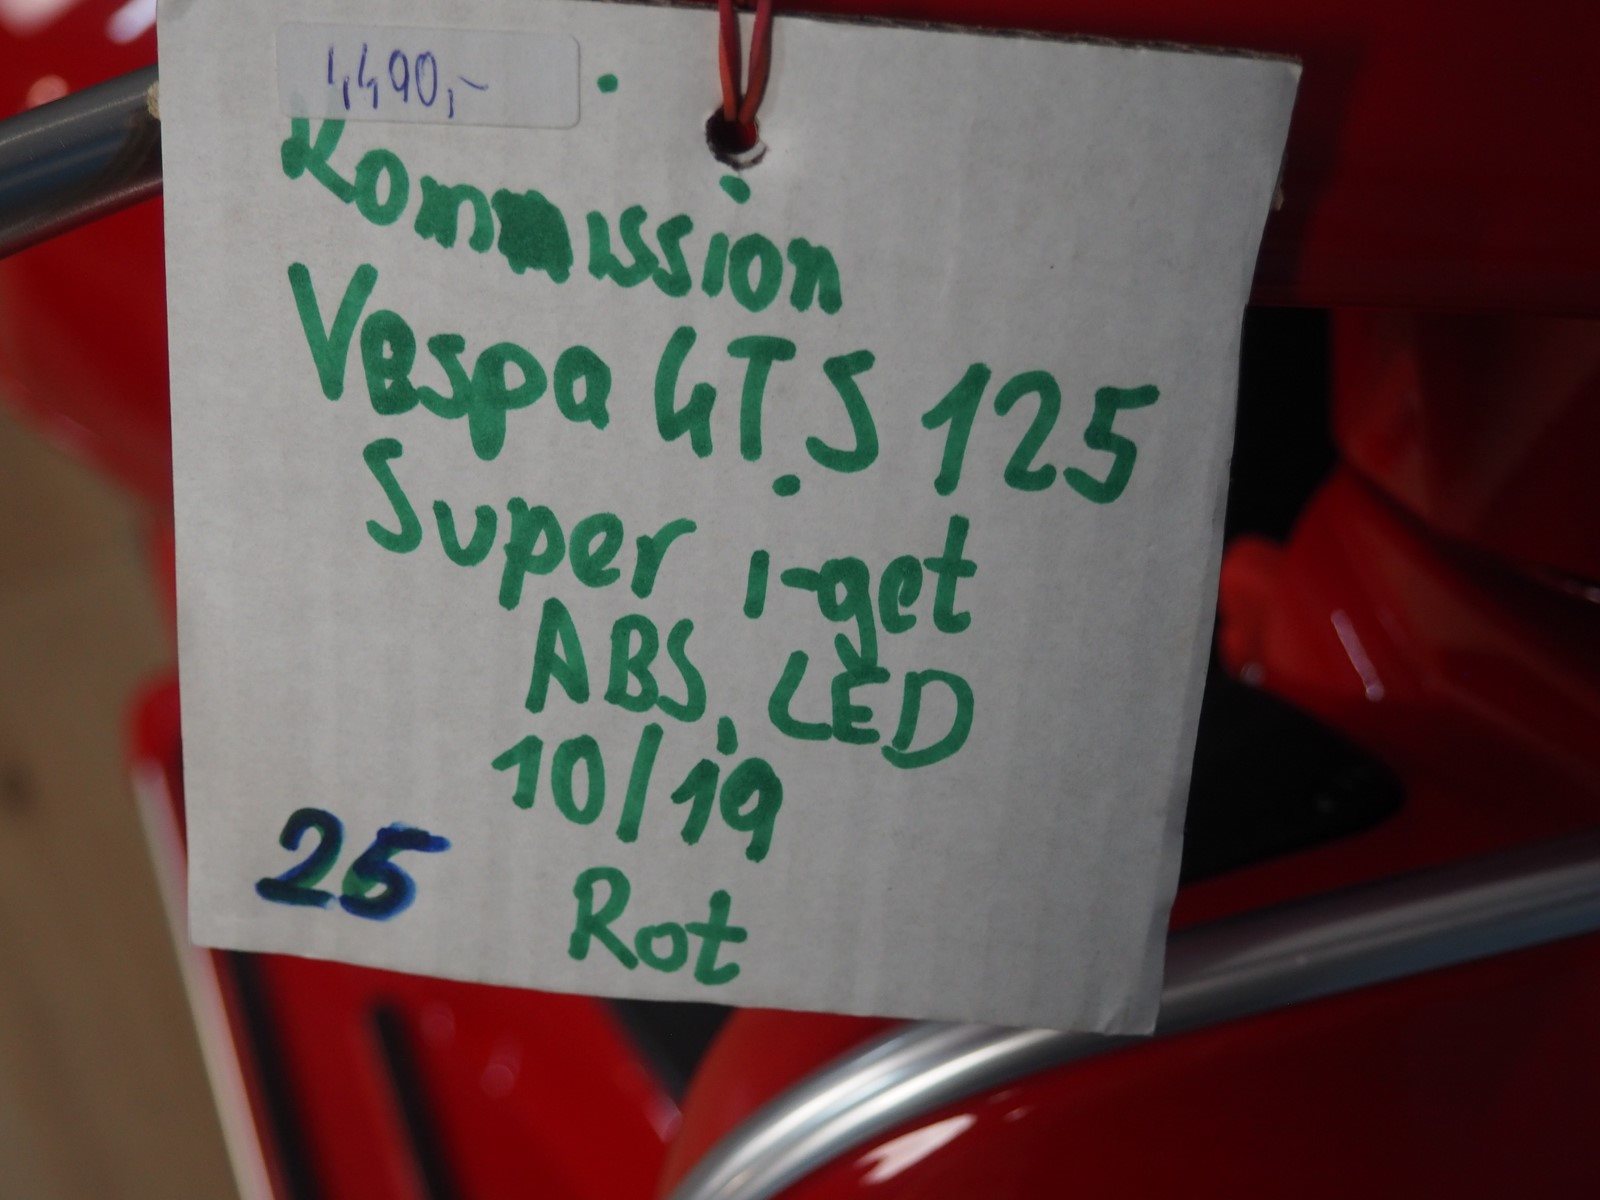 4490,-
Kommission
Vespa GTS 125
Super i-get
ABS, LED
10/19
25 Rot